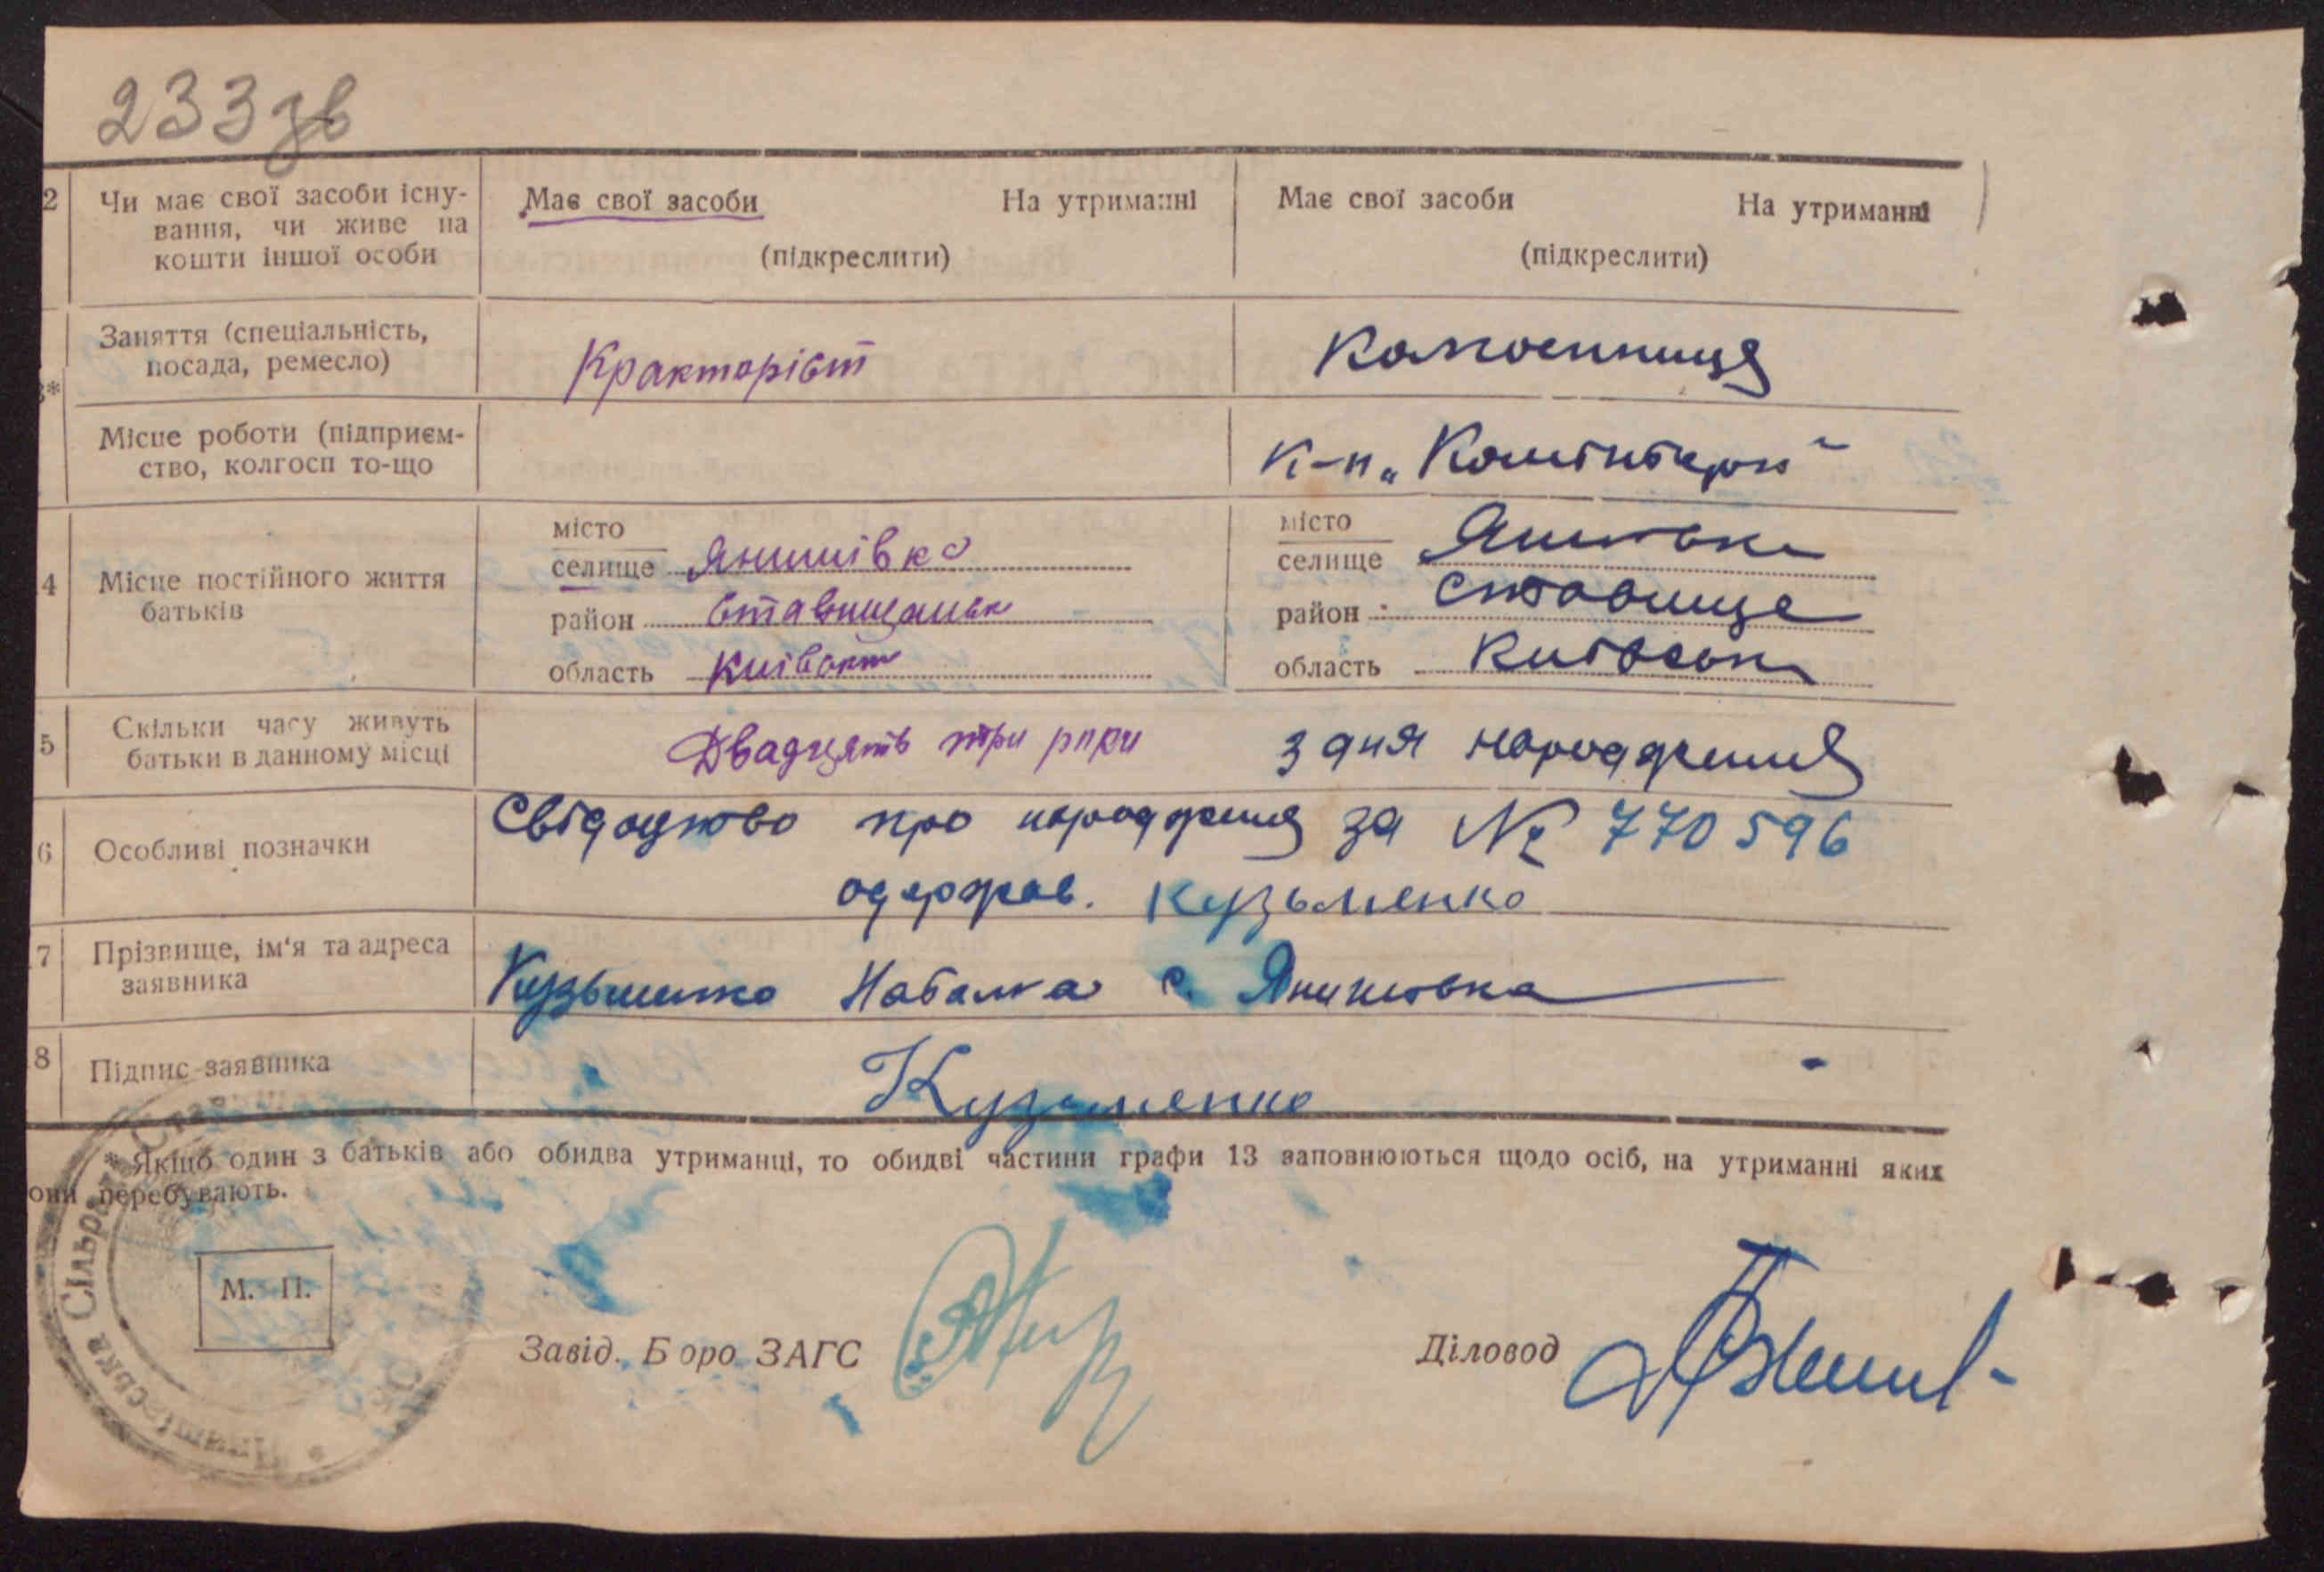 233 зв
2 Чи має свої засоби існу- Має свої засоби На утриманні Має свої засоби На утриманні
вання, чи живе на
кошти іншої особи (підкреслити) (підкреслити)
Заняття (спеціальність,
посада, ремесло) Кракторіст Колгоспниця
3*
Місце роботи (підприєм-
ство, колгосп то-що к-п „Комінтерн"
4 Місце постійного життя
батьків
місто місто
селище Янишівка селище
район Ставищанськ район Ставище
область Київськ область Київськ
5 Скільки часу живуть Двадцять три роки з дня народження
батьки в данному місці
6 Особливі позначки Свідоцтво про народження за № 770596
одержав. Кузьменко
7 Прізвище, ім'я та адреса
заявника Кузьменко с. Янишовка
8 Підпис заявника Кузьменко
* Якщо один з батьків або обидва утриманці, то обидві частини графи 13 заповнюються щодо осіб, на утриманні яких
они перебувають.
М. П.
Завід. Бюро ЗАГС Діловод
Сільрада